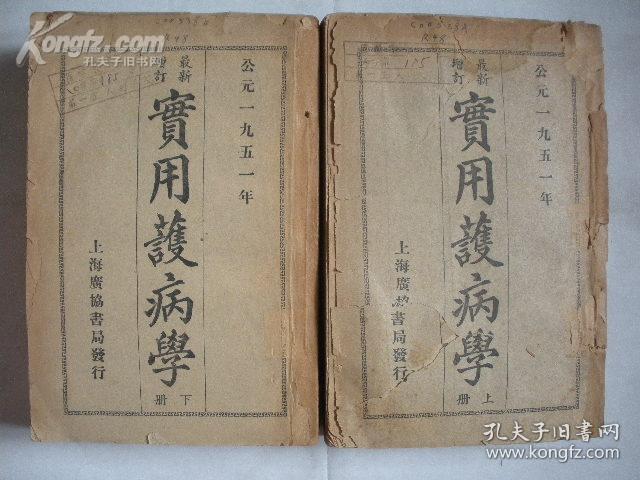 Kongfz.com
孔夫子旧书网
R48
185
公元一九五一年
最新
增訂
實用護病學
下册
上海廣協書局發行
R48
185
公元一九五一年
最新
增訂
實用護病學
上册
上海廣協書局發行
孔夫子旧书网
www.kongfz.com